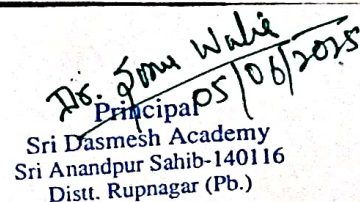 Dr. Sonu Walia
05/06/2025
Principal
Sri Dasmesh Academy
Sri Anandpur Sahib-140116
Distt. Rupnagar (Pb.)